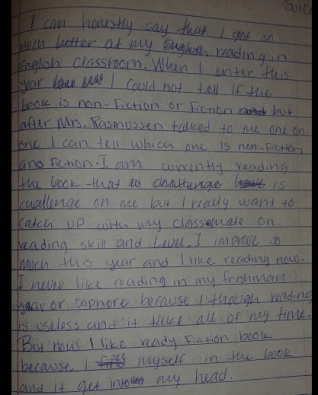 I can honestly say that I got so
much better at my reading in
English classroom. When I enter this
year I could not tell if the
book is non-Fiction or Fiction but
after Mrs. Rasmussen talked to me one on
one I can tell which one is non-Fiction
and Fiction. I am currently reading
the book that is
challenge on me but I really want to
catch up with my classmate on
reading skill and Level. I improve so
much this year and I like reading now.
I never like reading in my freshman
year or sophore because I though reading
is useless and it take all of my time.
But now I like ready Fiction book
because I myself in the book
and it get my head.